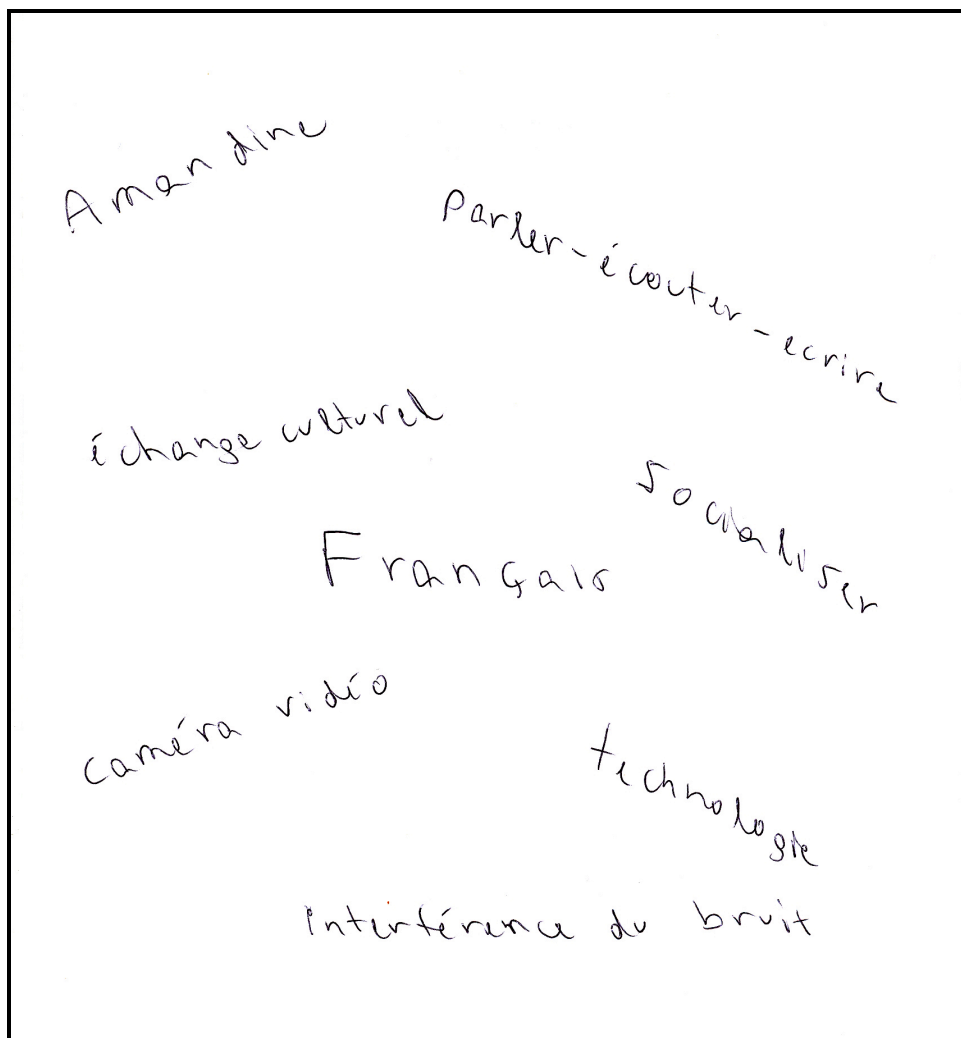 Amandine
Parler-écouter-ecrire
échange culturel
Socialiser
Français
caméra vidéo
technologie
interférence du bruit